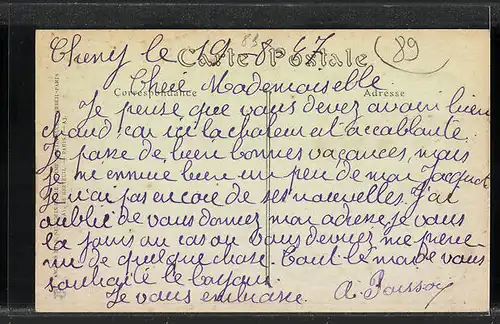 Cheny le 19-8-47
83
89
Carte Postale
Correspondance
Adresse
Cheie Mademoiselle
Je pense que vous devez avoir bien
chaud car ici la chaleur et accablante.
Je passe de bien bonnes vacances, mais
je me ennuie bien un peu de mon Jacquot
Je n'ai pas encore de ses nouvelles. J'ai
oublié de vous donner mon adresse je vous
la joins au cas ou vous devriez me préve
nir de quelque chose. Tout le monde vous
souhaite le bonjour
Je vous embrasse. A. Poisson